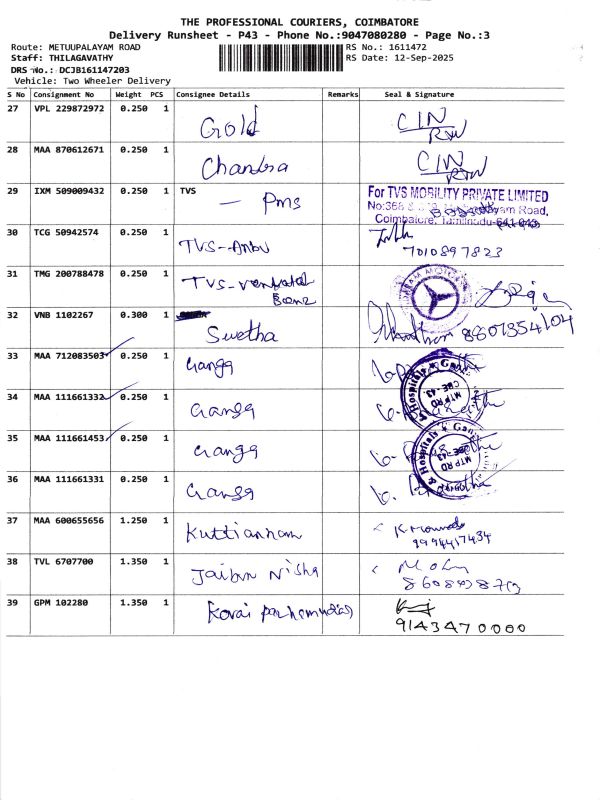 THE PROFESSIONAL COURIERS, COIMBATORE
Delivery Runsheet - P43 - Phone No.:9047080280 - Page No.:3
Route: METUUPALAYAM ROAD RS No.: 1611472
Staff: THILAGAVATHY RS Date: 12-Sep-2025
DRS No.: DCJB161147203
Vehicle: Two Wheeler Delivery
S No Consignment No Weight PCS Consignee Details Remarks Seal & Signature
27 VPL 229872972 0.250 1 Gold CIN
28 MAA 870612671 0.250 1 Chandra CIN
29 IXM 509009432 0.250 1 TVS - Pms For TVS MOBILITY PRIVATE LIMITED
Coimbatore, Tamilnadu-641 043
30 TCG 50942574 0.250 1 TVS-Anbu 7010897823
31 TMG 200788478 0.250 1 TVS-Venkatal Benz
32 VNB 1102267 0.300 1 Swetha
33 MAA 712083503 0.250 1 Ganga
34 MAA 111661332 0.250 1 Ganga
35 MAA 111661453 0.250 1 Ganga
36 MAA 111661331 0.250 1 Ganga
37 MAA 600655656 1.250 1 Kuttiannan
38 TVL 6707700 1.350 1 Jaibun Nisha
39 GPM 102280 1.350 1 Kovai
9143470000